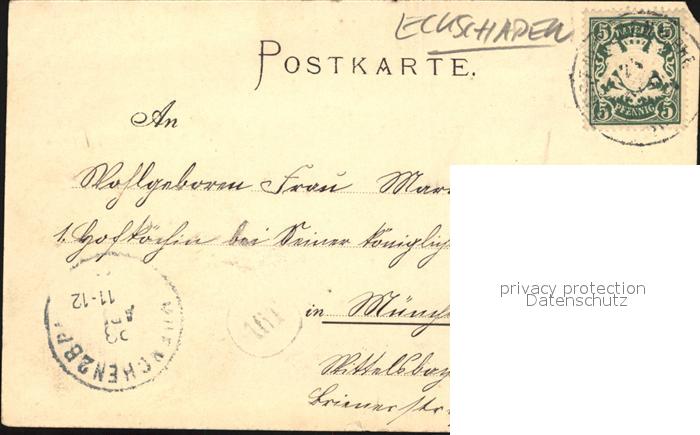 ECKSCHADEN
POSTKARTE.
5 BAYERN 5
5 PFENNIG 5
An
Wohlgeboren Frau Mar
1. Hofköchin bei Seiner Königlich
in Münch
Wittelsba
Briennerstr.
MUENCHEN 2 B.P.
23
APR
11-12
161
privacy protection
Datenschutz